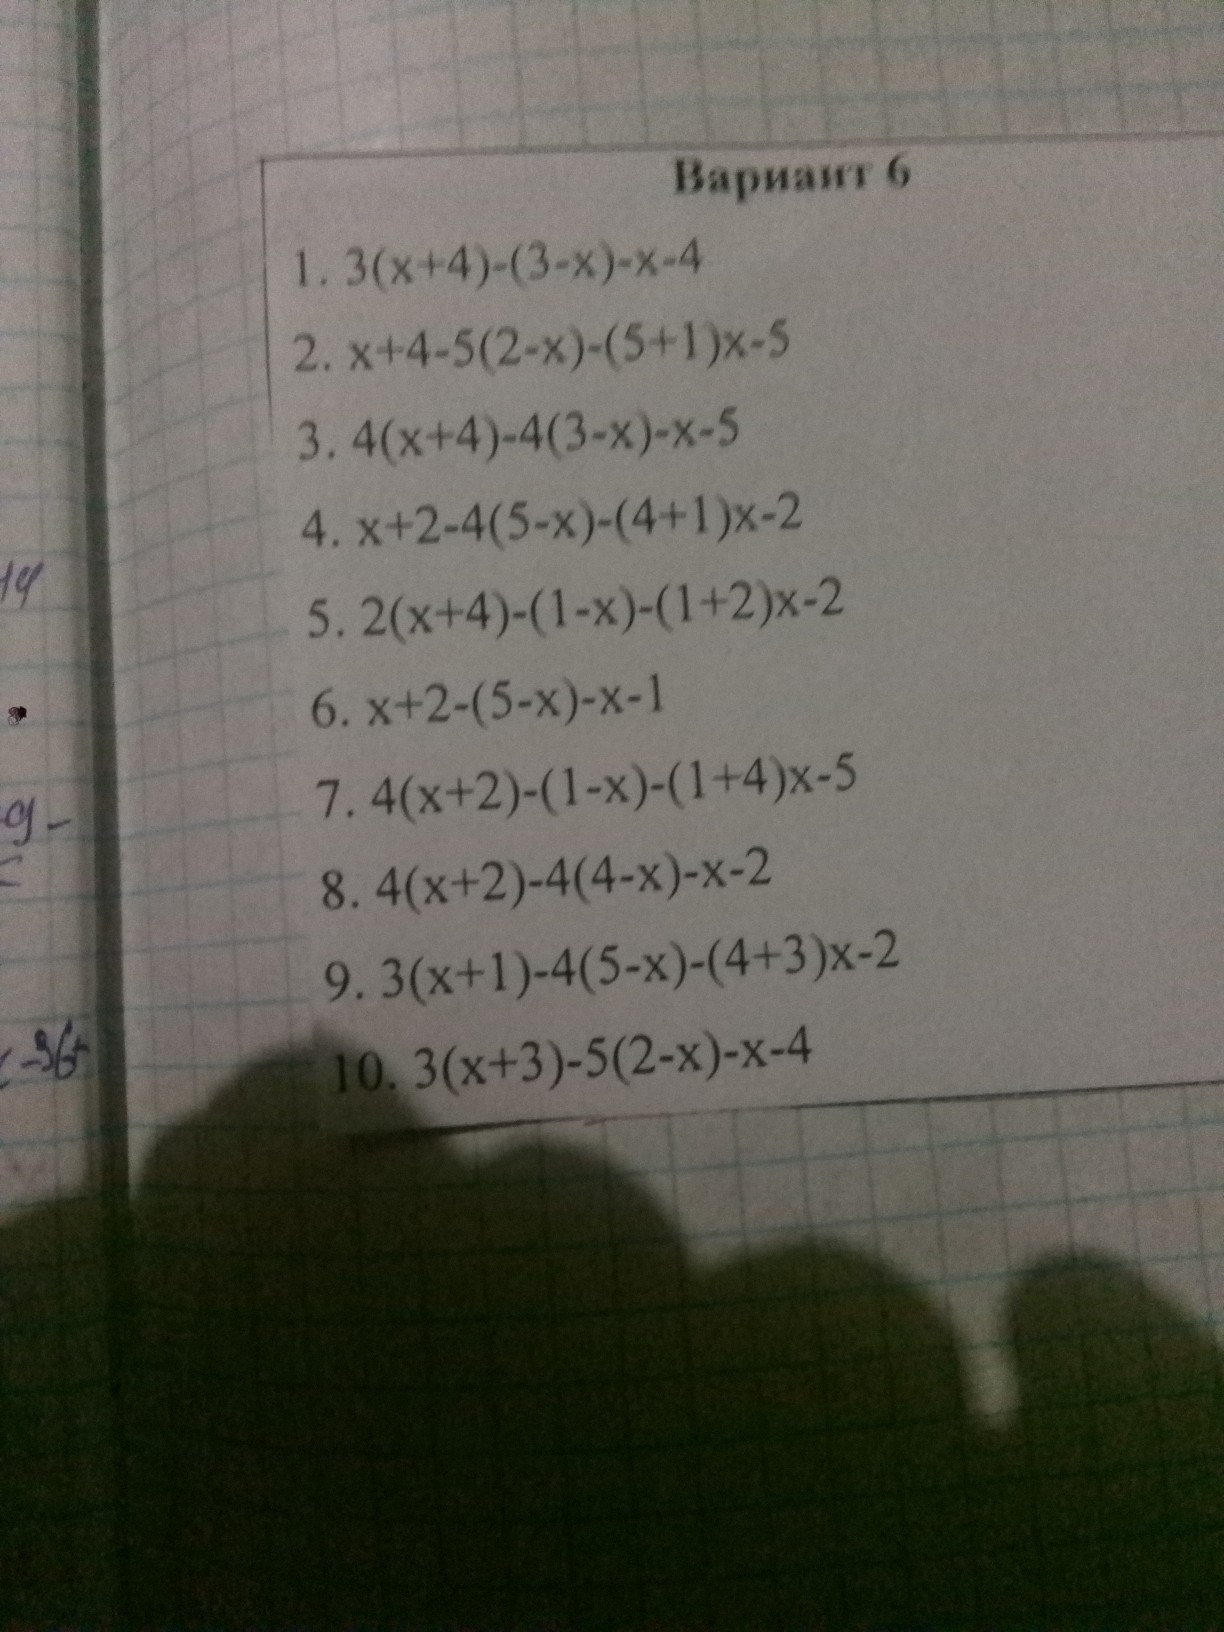 Вариант 6
1. 3(x+4)-(3-x)-x-4
2. x+4-5(2-x)-(5+1)x-5
3. 4(x+4)-4(3-x)-x-5
4. x+2-4(5-x)-(4+1)x-2
5. 2(x+4)-(1-x)-(1+2)x-2
6. x+2-(5-x)-x-1
7. 4(x+2)-(1-x)-(1+4)x-5
8. 4(x+2)-4(4-x)-x-2
9. 3(x+1)-4(5-x)-(4+3)x-2
10. 3(x+3)-5(2-x)-x-4